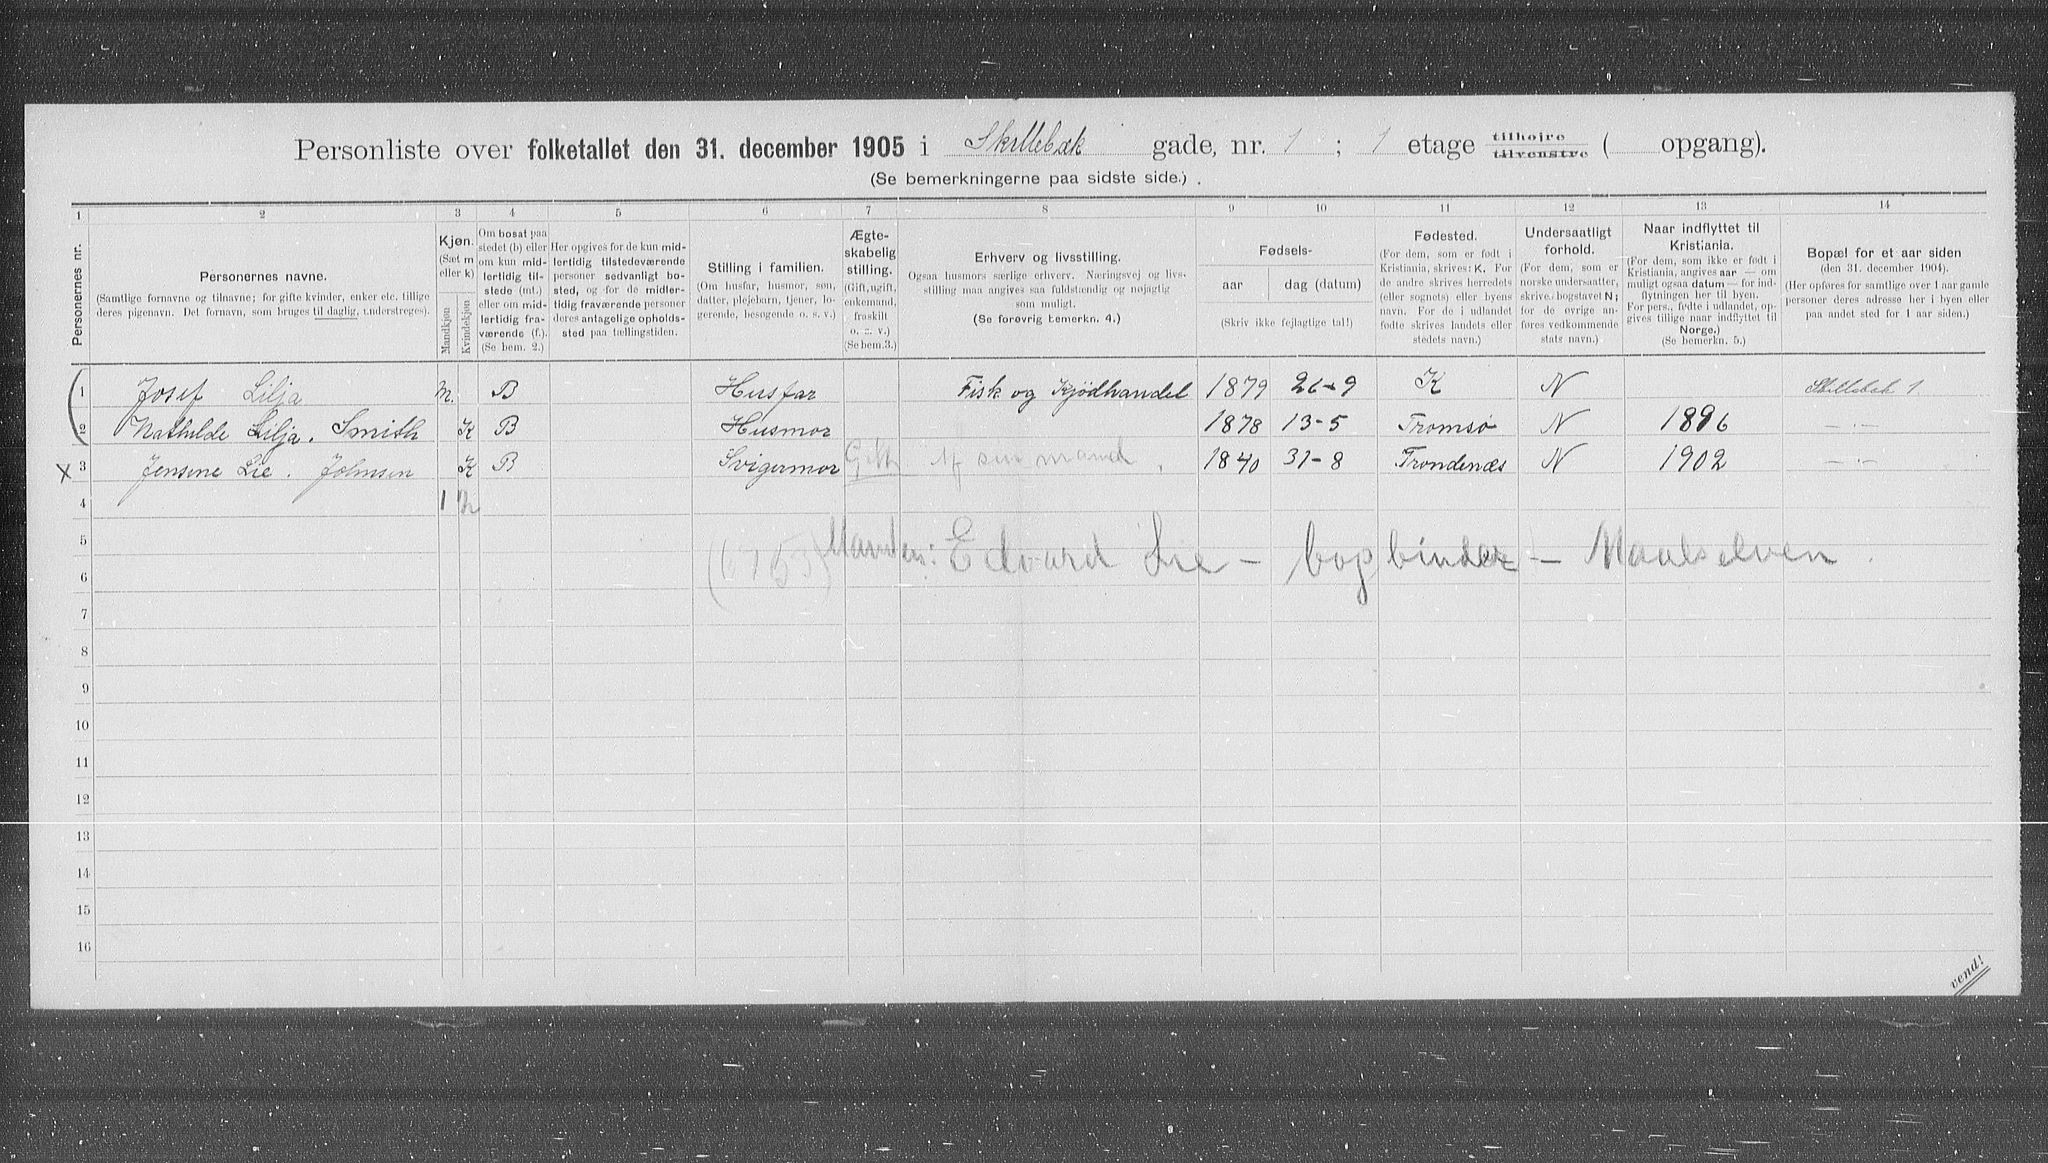 Personliste over folketallet den 31. december 1905 i Skillebæk gade, nr. 1 ; 1 etage tilhøjre tilvenstre ( opgang).
(Se bemerkningerne paa sidste side.)
1 2 3 4 5 6 7 8 9 10 11 12 13 14
Personernes nr.
Personernes navne.
(Samtlige fornavne og tilnavne; for gifte kvinder, enker etc. tillige
deres pigenavn. Det fornavn, som bruges til daglig, understreges).
Kjøn.
(Sæt m
eller k)
Mandkjøn
Kvindekjøn
Om bosat paa
stedet (b) eller
om kun mid-
lertidig til-
stede (mt.)
eller om mid-
lertidig fra-
værende (f.).
(Se bem. 2.)
Her opgives for de kun mid-
lertidig tilstedeværende
personer sedvanligt bo-
sted, og for de midler-
tidig fraværende personer
deres antagelige opholds-
sted paa tællingstiden.
Stilling i familien.
(Om husfar, husmor, søn,
datter, plejebarn, tjener, lo-
gerende, besøgende o. s. v.)
Ægte-
skabelig
stilling.
(Gift, ugift,
enkemand,
fraskilt
o. s. v.)
(Se bem.3.)
Erhverv og livsstilling.
Ogsaa husmors særlige erhverv. Næringsvej og livs-
stilling maa angives saa fuldstændig og nøjagtig
som muligt.
(Se forøvrig bemerkn. 4.)
Fødsels-
aar
dag (datum)
(Skriv ikke fejlagtige tal!)
Fødested.
(For dem, som er født i
Kristiania, skrives: K. For
de andre skrives herredets
(eller sognets) eller byens
navn. For de i udlandet
fødte skrives landets eller
stedets navn.)
Undersaatligt
forhold.
(For dem, som er
norske undersaatter,
skrives bogstavet N;
for de øvrige an-
føres vedkommende
stats navn.)
Naar indflyttet til
Kristiania.
(For dem, som ikke er født i
Kristiania, angives aar — om
muligt ogsaa datum — for ind-
flytningen her til byen.
For pers., fødte i udlandet, op-
gives tillige naar indflyttet til
Norge.)
(Se bemerkn. 5.)
Bopæl for et aar siden
(den 31. december 1904).
(Her opføres for samtlige over 1 aar gamle
personer deres adresse her i byen eller
paa andet sted for 1 aar siden.)
1 Josef Lilja m. B Husfar Fisk og Kjødhandel 1879 26-9 K N Skillebæk 1.
2 Mathilde Lilja. Smith K B Husmor 1878 13-5 Tromsø N 1896 — . —
x 3 Jensine Lie. Johnsen K B Svigermor Gift Af sin mand. 1840 31-8 Trondenæs N 1902 — . —
4 1 2
5
(6753) Manden: Edvard Lie - bogbinder - Maalselven.
6
7
8
9
10
11
12
13
14
15
16
vend!